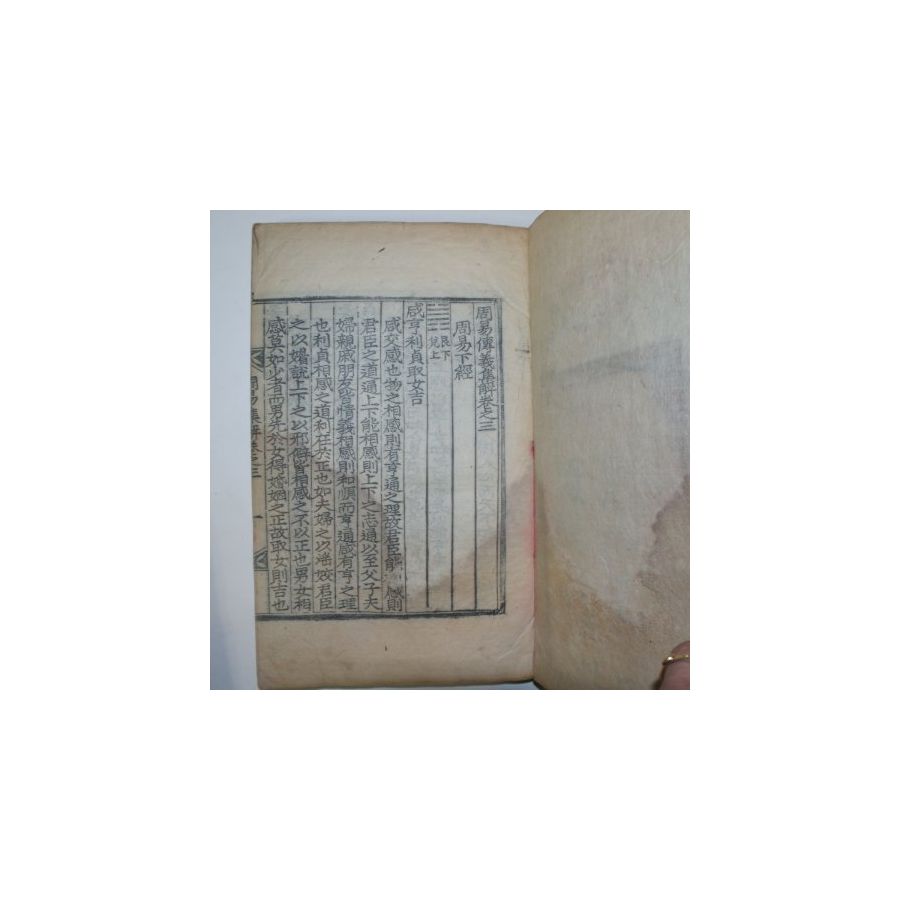 周易傳義集解卷之三
周易下經
艮下
兌上
咸亨利貞取女吉
咸交感也物之相感則有亨通之理故君臣能感則
君臣之道通上下能相感則上下之志通以至父子夫
婦親戚朋友皆情義相感則和順而亨通咸有亨之理
也利貞相感之道利在於正也如夫婦之以淫姣君臣
之以媚說上下之以邪僻皆相感之不以正也男女相
感莫如少者而男先於女得婚姻之正故取女則吉也
周易集解卷之三 一